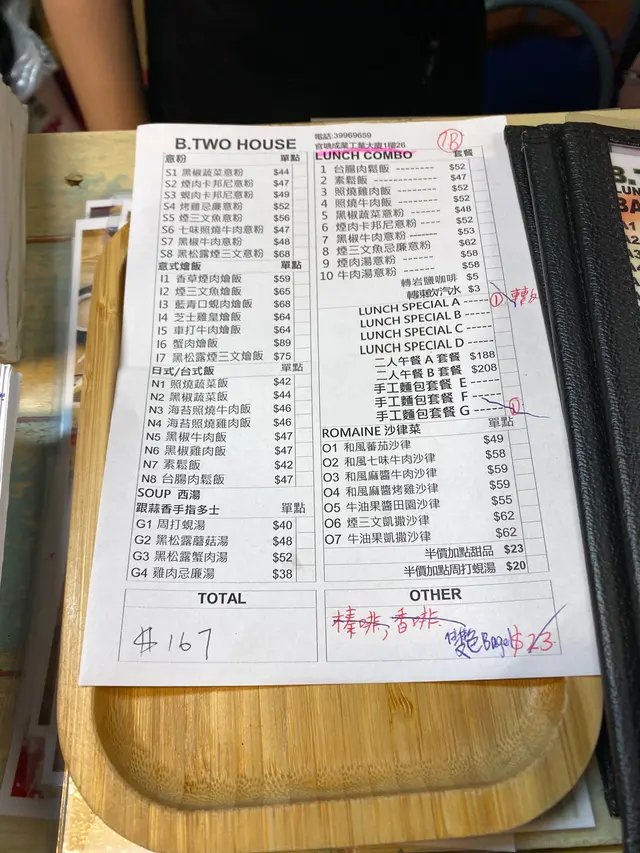 B.TWO HOUSE
電話:39969659
官塘成業工業大廈1樓26
7B
意粉 單點
S1 黑椒蔬菜意粉 $44
S2 煙肉卡邦尼意粉 $47
S3 蜆肉卡邦尼意粉 $49
S4 烤雞忌廉意粉 $52
S5 煙三文意粉 $56
S6 七味照燒牛肉意粉 $47
S7 黑椒牛肉意粉 $48
S8 黑松露煙三文意粉 $68
意式燴飯 單點
I1 香草煙肉燴飯 $59
I2 煙三文魚燴飯 $65
I3 藍青口蜆肉燴飯 $68
I4 芝士雞皇燴飯 $64
I5 車打牛肉燴飯 $64
I6 蟹肉燴飯 $89
I7 黑松露煙三文燴飯 $75
日式/台式飯 單點
N1 照燒蔬菜飯 $42
N2 黑椒蔬菜飯 $44
N3 海苔照燒牛肉飯 $46
N4 海苔照燒雞肉飯 $46
N5 黑椒牛肉飯 $47
N6 黑椒雞肉飯 $47
N7 素鬆飯 $42
N8 台腸肉鬆飯 $47
SOUP 西湯
跟蒜香手指多士 單點
G1 周打蜆湯 $40
G2 黑松露蘑菇湯 $48
G3 黑松露蟹肉湯 $52
G4 雞肉忌廉湯 $38
LUNCH COMBO 套餐
1 台腸肉鬆飯 -------- $52
2 素鬆飯 -------------- $47
3 照燒雞肉飯 -------- $52
4 照燒牛肉飯 -------- $52
5 黑椒蔬菜意粉 ------ $48
6 煙肉卡邦尼意粉 ---- $52
7 黑椒牛肉意粉 ------- $53
8 煙三文魚忌廉意粉 $62
9 煙肉湯意粉 $58
10 牛肉湯意粉 $58
轉岩鹽咖啡 $5
轉樽飲汽水 $3
LUNCH SPECIAL A ----- 1
LUNCH SPECIAL B -----
LUNCH SPECIAL C -----
LUNCH SPECIAL D -----
二人午餐 A 套餐 $188
二人午餐 B 套餐 $208
手工麵包套餐 E -----
手工麵包套餐 F -----
手工麵包套餐 G ----- 1
ROMAINE 沙律菜 單點
O1 和風蕃茄沙律 $49
O2 和風七味牛肉沙律 $58
O3 和風麻醬牛肉沙律 $59
O4 和風麻醬烤雞沙律 $59
O5 牛油果醬田園沙律 $55
O6 煙三文凱撒沙律 $62
O7 牛油果凱撒沙律 $62
半價加點甜品 $23
半價加點周打蜆湯 $20
TOTAL
$167
OTHER
榛啡,香啡
雙色Bagel $23